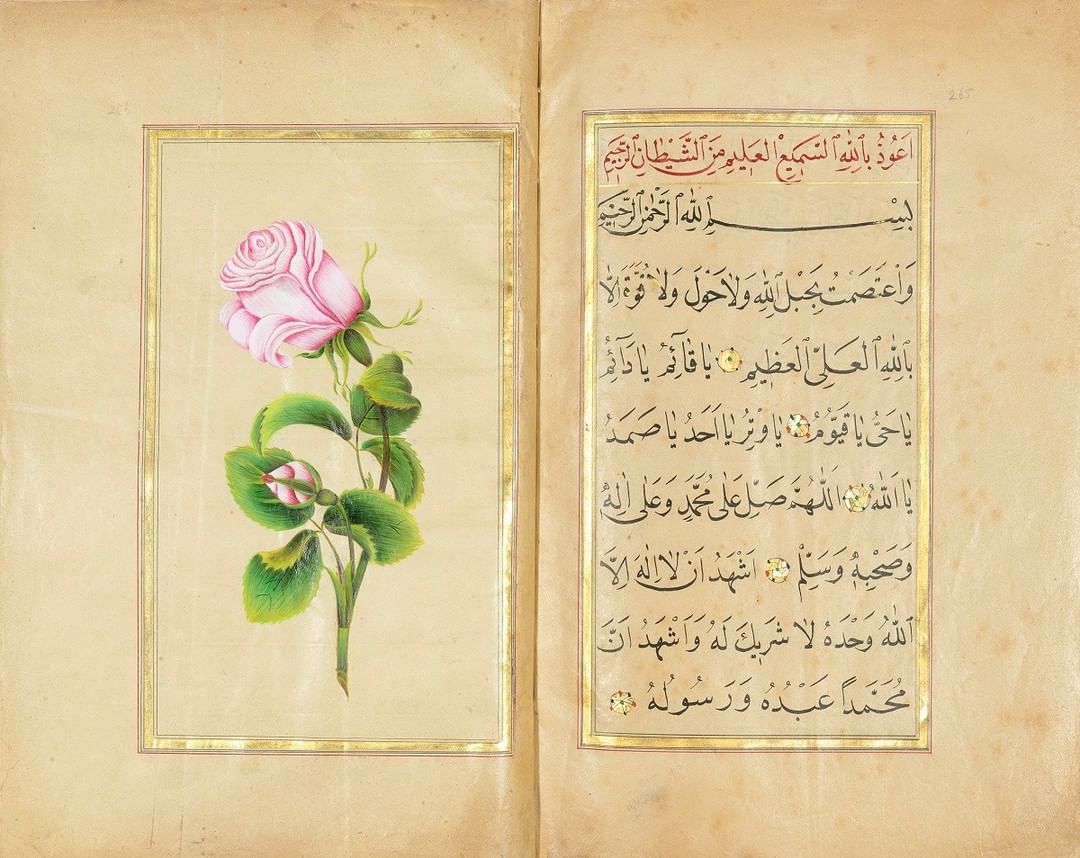 265
اَعُوذُ بِاللّٰهِ السَّمِيعِ الْعَلِيمِ مِنَ الشَّيْطَانِ الرَّجِيمِ
بِسْمِ اللّٰهِ الرَّحْمٰنِ الرَّحِيمِ
وَاعْتَصَمْتُ بِحَبْلِ اللّٰهِ وَلَا حَوْلَ وَلَا قُوَّةَ اِلَّا
بِاللّٰهِ الْعَلِىِّ الْعَظِيمِ يَا قَٓائِمُ يَا دَٓائِمُ
يَا حَىُّ يَا قَيُّومُ يَا وِتْرُ يَا اَحَدُ يَا صَمَدُ
يَا اَللّٰهُ اَللّٰهُمَّ صَلِّ عَلٰى مُحَمَّدٍ وَعَلٰى اٰلِهِ
وَصَحْبِهِ وَسَلِّمْ اَشْهَدُ اَنْ لَا اِلٰهَ اِلَّا
اللّٰهُ وَحْدَهُ لَا شَرِيكَ لَهُ وَاَشْهَدُ اَنَّ
مُحَمَّدًا عَبْدُهُ وَرَسُولُهُ